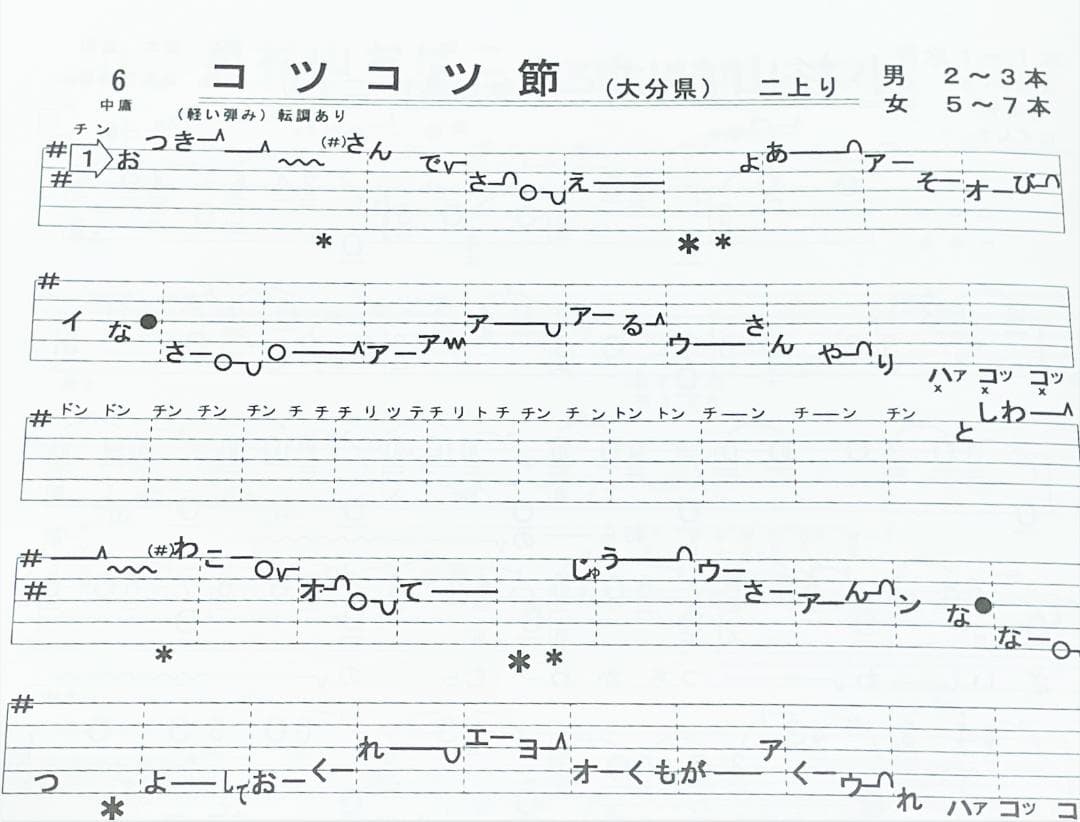 6 コツコツ節 (大分県) 二上り 男 2～3本
中庸 女 5～7本
(軽い弾み) 転調あり
チン
# 1 おつきー (#)さん でさーえー よあーアーそーオーびー
#
* * *
# イ なさー アーアアーアーるウーさん やーり
ハァ コッ コッ
× × ×
# ドン ドン チン チン チン チ チ チ リ ツ テ チ リ ト チ チン チ ン トン トン チーン チーン チン
としわー
# ー (#)わこー オーてー じゅうーウーさーアーんーン ななー
#
* * *
# つ よーしておーくーれーエーヨーオーくもがーアくーウーれ
* ハァ コッ コ